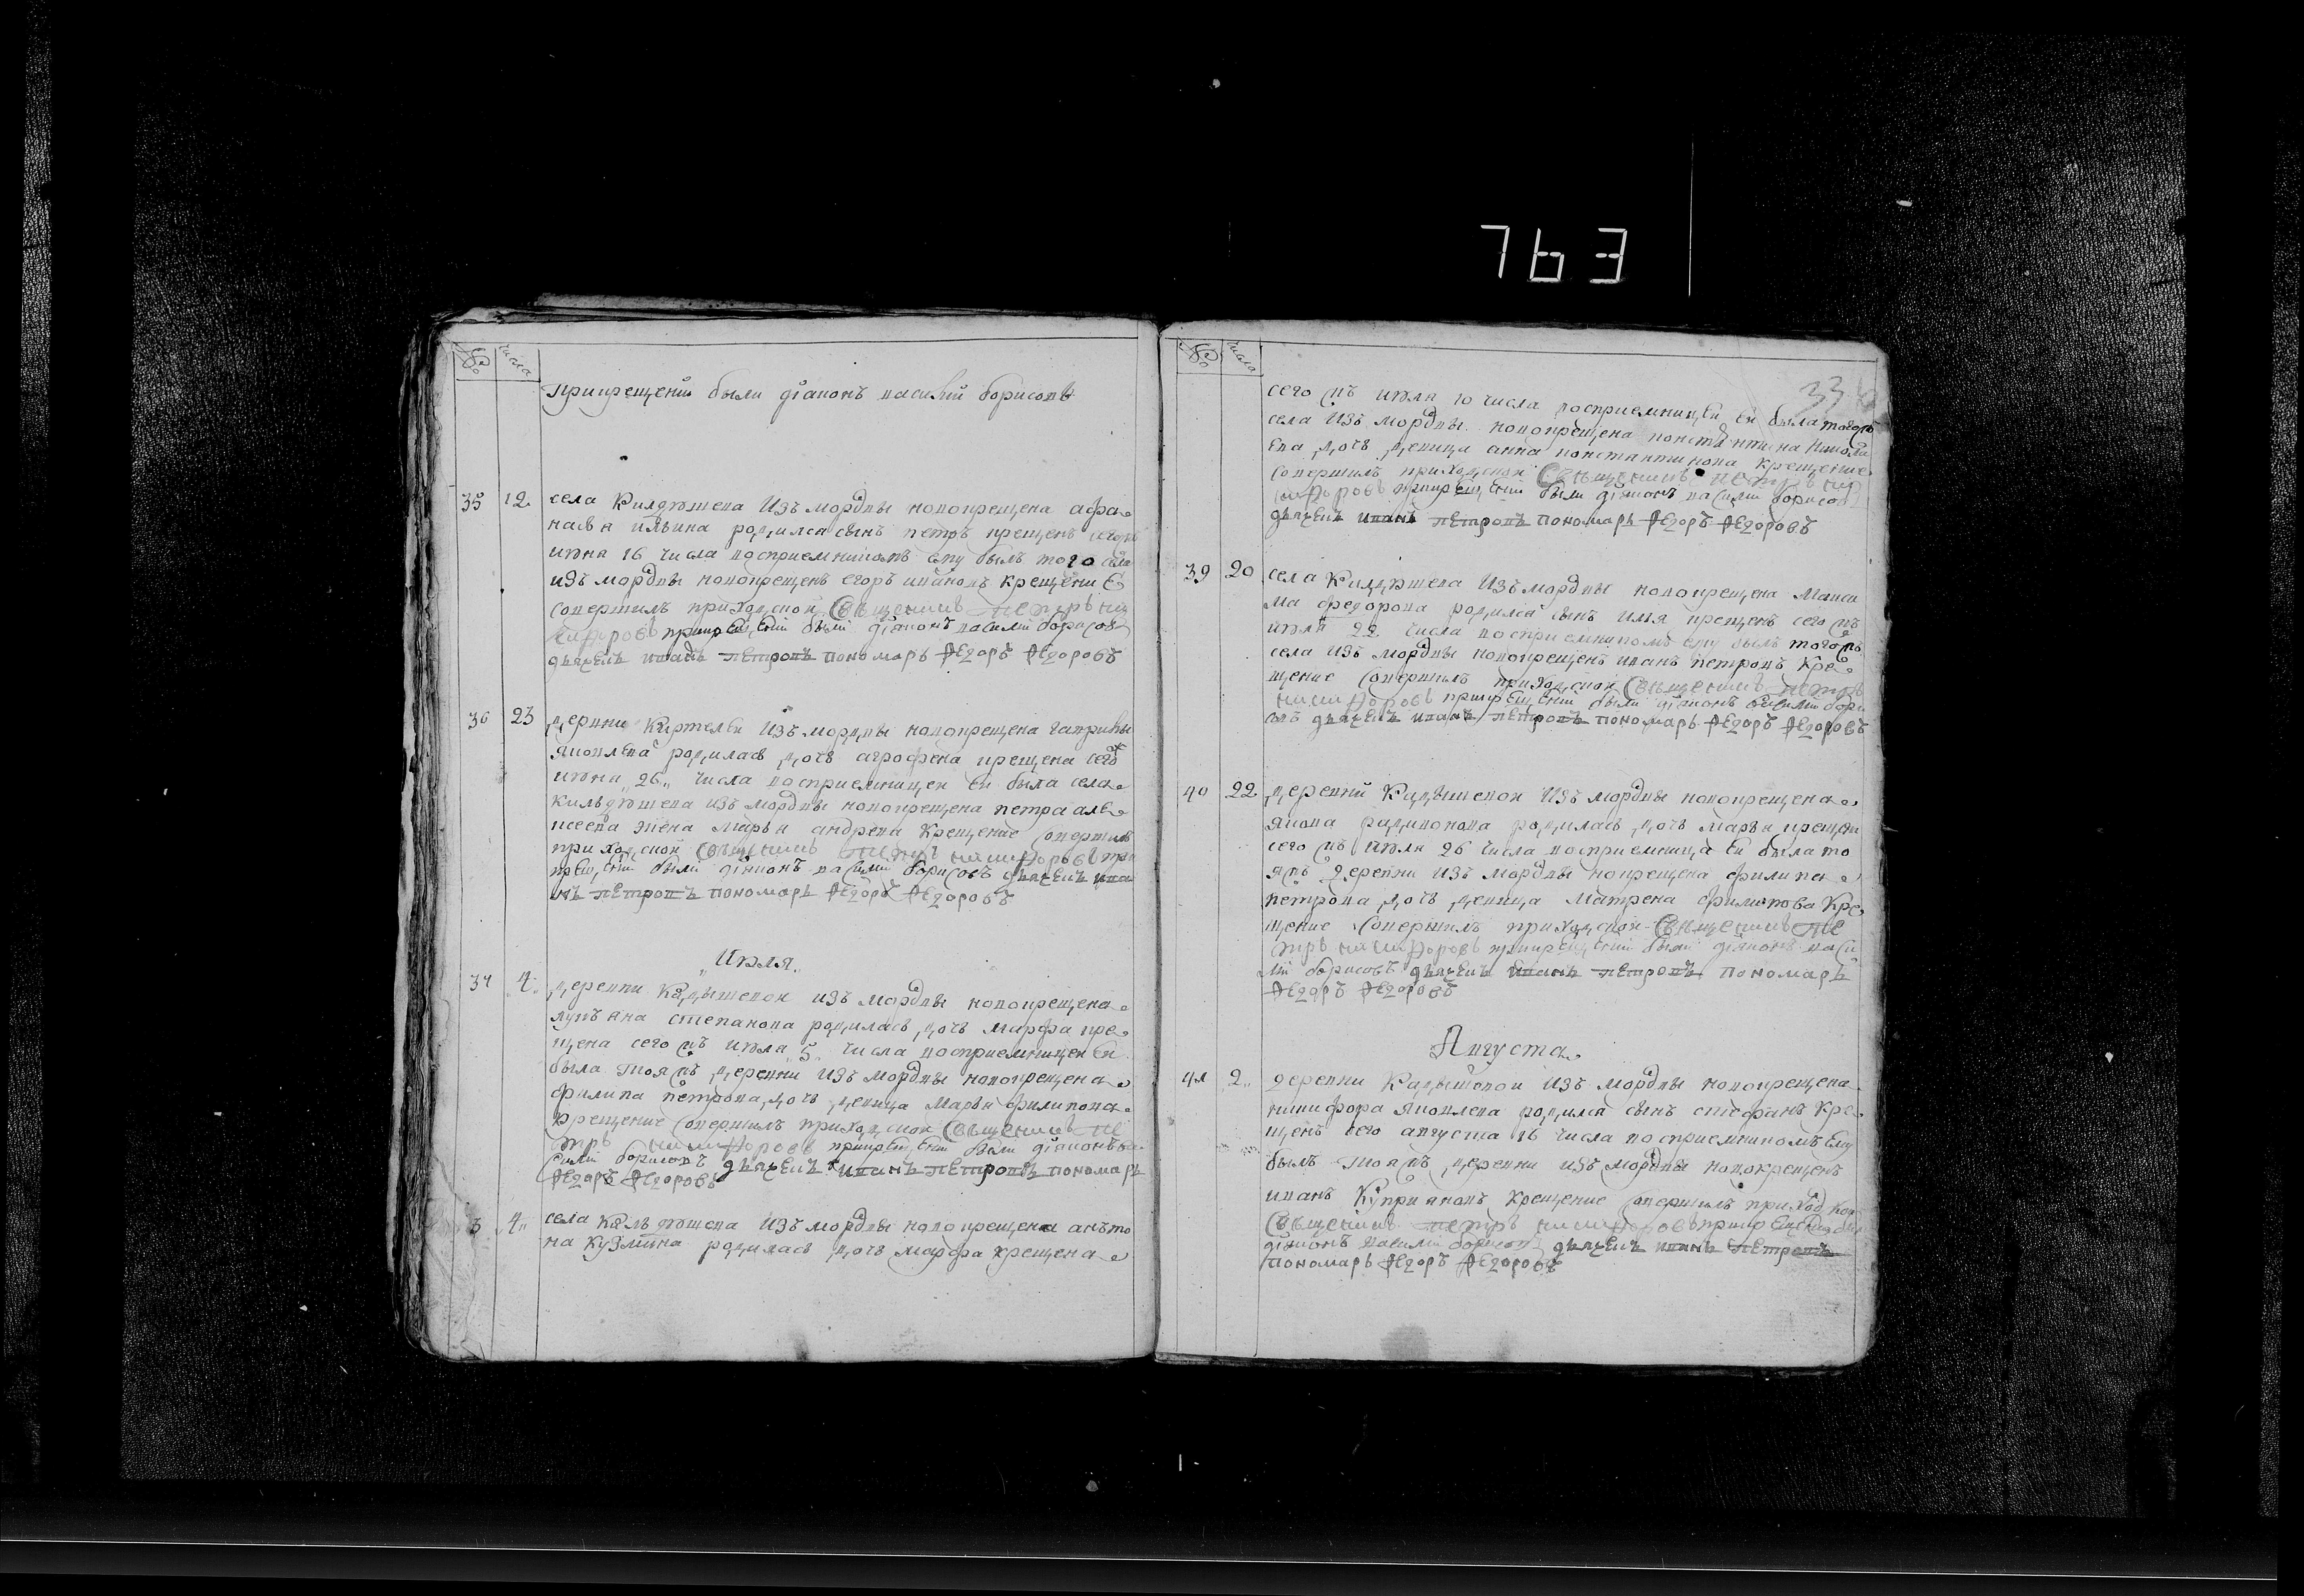 763
№ числа
при крещении были диаконъ василий борисовъ
35 12 села Килдюшева изъ мордвы новокрещена афа
насья ильина родился сынъ петръ крещенъ сегожъ
июня 16 числа восприемникомъ ему былъ того села
изъ мордвы новокрещенъ егоръ ивановъ крещение
совершилъ приходской священникъ петръ ни
кифоровъ при крещении были диаконъ василий борисовъ
дьячекъ иванъ петровъ пономарь федоръ федоровъ
36 23 деревни Киртелей изъ мордвы новокрещена гаврилы
яковлева родилась дочь агрофена крещена сегожъ
июня 26 числа восприемницей ей была села
Кильдюшева изъ мордвы новокрещена петра але
ксеева жена марья андрева крещение совершилъ
приходской священникъ петръ никифоровъ при
крещении были диаконъ василий борисовъ дьячекъ ива
нъ петровъ пономарь федоръ федоровъ
Июля
37 4 деревни Кадышевой изъ мордвы новокрещена
лукъяна степанова родилась дочь марфа кре
щена сего жъ июля 5 числа восприемницей ей
была тояжъ деревни изъ мордвы новокрещена
филипа петрова дочь девица марья филипова
крещение совершилъ приходской священникъ пе
тръ никифоровъ при крещении были диаконъ ва
силий борисовъ дьячекъ иванъ петровъ пономарь
федоръ федоровъ
3 4 села Кильдюшева изъ мордвы новокрещена анъто
на кузмина родилась дочь марфа крещена
№ числа
33
сего жъ июля 10 числа восприемницей ей была тогожъ
села изъ мордвы новокрещена констянтина никола
ева дочь девица анна константинова крещение
совершилъ приходской священникъ петръ ни
кифоровъ при крещении были диаконъ василий борисовъ
дьячекъ иванъ петровъ пономарь федоръ федоровъ
39 20 села Килдюшева изъ мордвы новокрещена макси
ма федорова родился сынъ илья крещенъ сего жъ
июля 22 числа восприемникомъ ему былъ тогожъ
села изъ мордвы новокрещенъ иванъ петровъ кре
щение совершилъ приходской священникъ петръ
никифоровъ при крещении были диаконъ василий бори
совъ дьячекъ иванъ петровъ пономарь федоръ федоровъ
40 22 деревни Кадышевой изъ мордвы новокрещена
якова радионова родилась дочь марья крещен
сего жъ июля 26 числа восприемница ей была то
яжъ деревни изъ мордвы нокрещена филипа
петрова дочь девица матрена филипова кре
щение совершилъ приходской священникъ пе
тръ никифоровъ при крещении были диаконъ васи
лий борисовъ дьячекъ иванъ петровъ пономарь
федоръ федоровъ
Августа
41 2 деревни Кадышевой изъ мордвы новокрещена
никифора яковлева родился сынъ стефанъ кре
щенъ сего августа 16 числа восприемникомъ ему
былъ тояжъ деревни изъ мордвы новокрещенъ
иванъ куприяновъ крещение совершилъ приходской
священникъ петръ никифоровъ при крещении были
диаконъ василий борисовъ дьячекъ иванъ петровъ
пономарь федоръ федоровъ